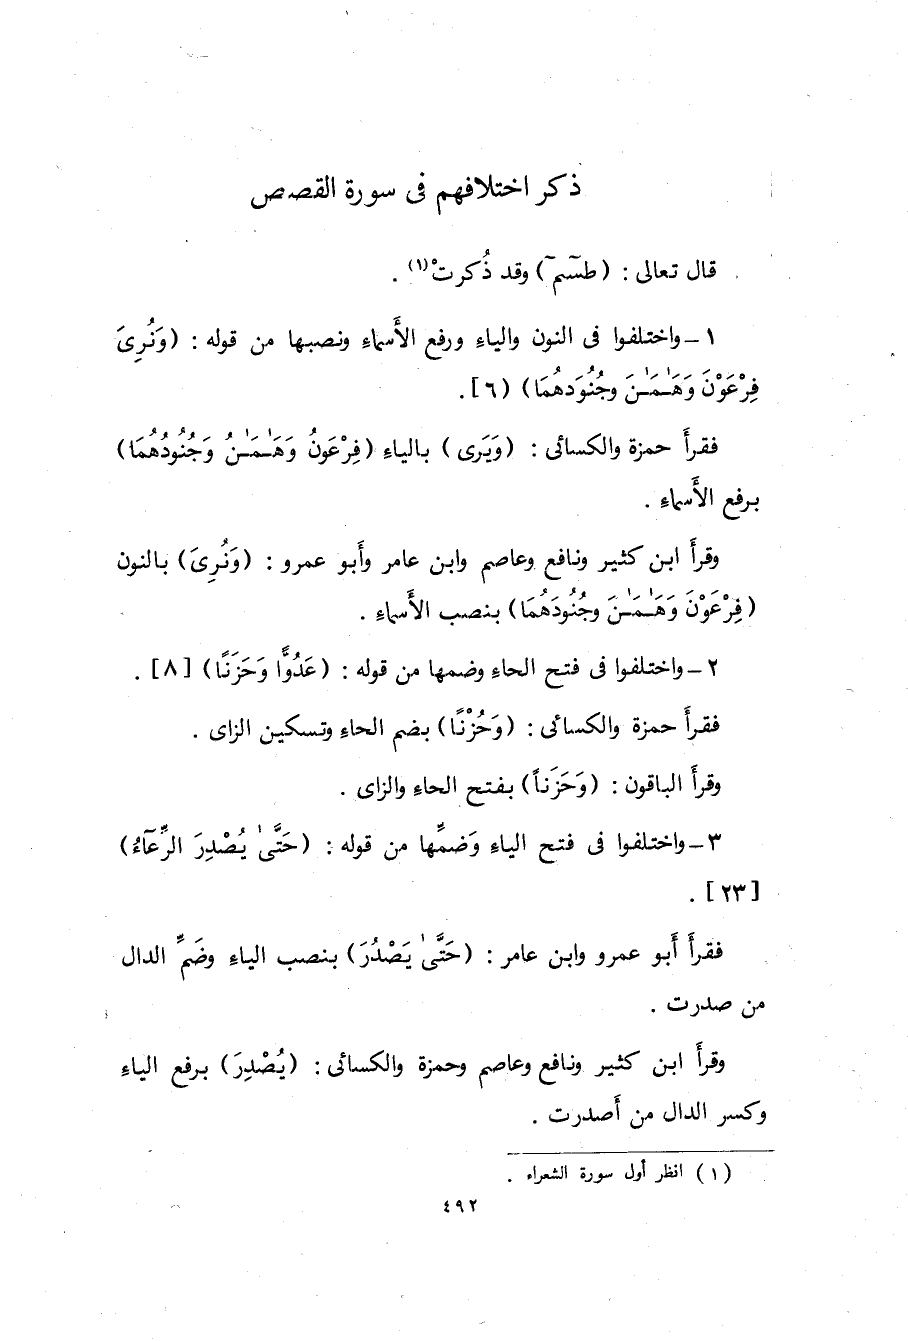 ذكر اختلافهم فى سورة القصص
قال تعالى : ( طسٓمٓ ) وقد ذُكرتْ(١) .
١ – واختلفوا فى النون والياء ورفع الأَسماء ونصبها من قوله : ( وَنُرِىَ
فِرْعَوْنَ وَهَـٰمَـٰنَ وجُنُودهُمَا ) ( ٦ ] .
فقرأَ حمزة والكسائى : ( وَيَرى ) بالياء ( فِرْعَونُ وَهَـٰمَـٰنُ وَجُنُودُهُمَا )
برفع الأَسماء .
وقرأَ ابن كثير ونافع وعاصم وابن عامر وأَبو عمرو : ( وَنُرِىَ ) بالنون
( فِرْعَوْنَ وَهَـٰمَـٰنَ وجُنُودَهُمَا ) بنصب الأَسماء .
٢ – واختلفوا فى فتح الحاء وضمها من قوله : ( عَدُوًّا وَحَزَنًا ) [ ٨ ] .
فقرأَ حمزة والكسائى : ( وَحُزْنًا ) بضم الحاء وتسكين الزاى .
وقرأَ الباقون : ( وَحَزَناً ) بفتح الحاء والزاى .
٣ – واختلفوا فى فتح الياء وَضمِّها من قوله : ( حَتَّىٰ يُصْدِرَ الرِّعَآءُ )
[ ٢٣ ] .
فقرأَ أَبو عمرو وابن عامر : ( حَتَّىٰ يَصْدُرَ ) بنصب الياء وضَمِّ الدال
من صدرت .
وقرأَ ابن كثير ونافع وعاصم وحمزة والكسائى : ( يُصْدِرَ ) برفع الياء
وكسر الدال من أَصدرت .
( ١ ) انظر أول سورة الشعراء .
٤٩٢